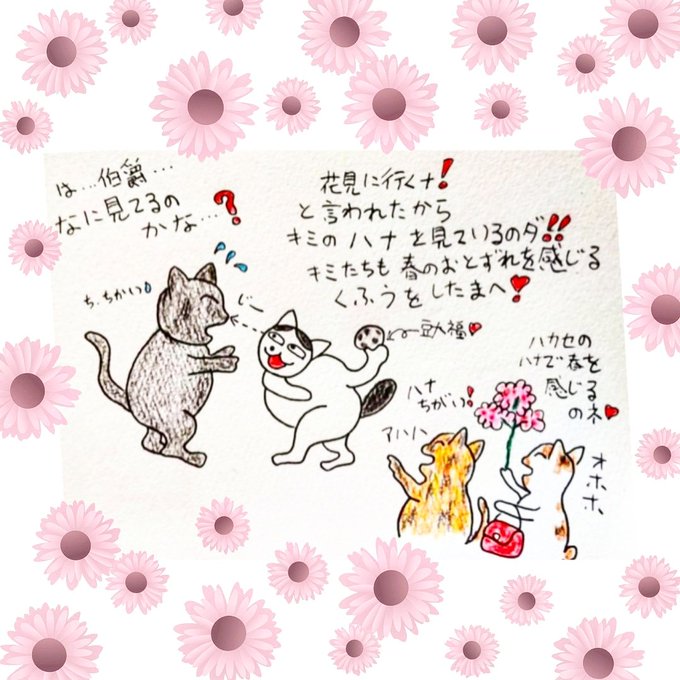 は…伯爵…
なに見てるの
かな…?
ち、ちかい
じー
花見に行くナ!
と言われたから
キミのハナを見ているのダ!!
キミたちも春のおとずれを感じる
くふうをしたまへ!
豆大福
ハカセの
ハナで春を
感じる
のネ
ハナ
ちがい!
アハハ
オホホ、